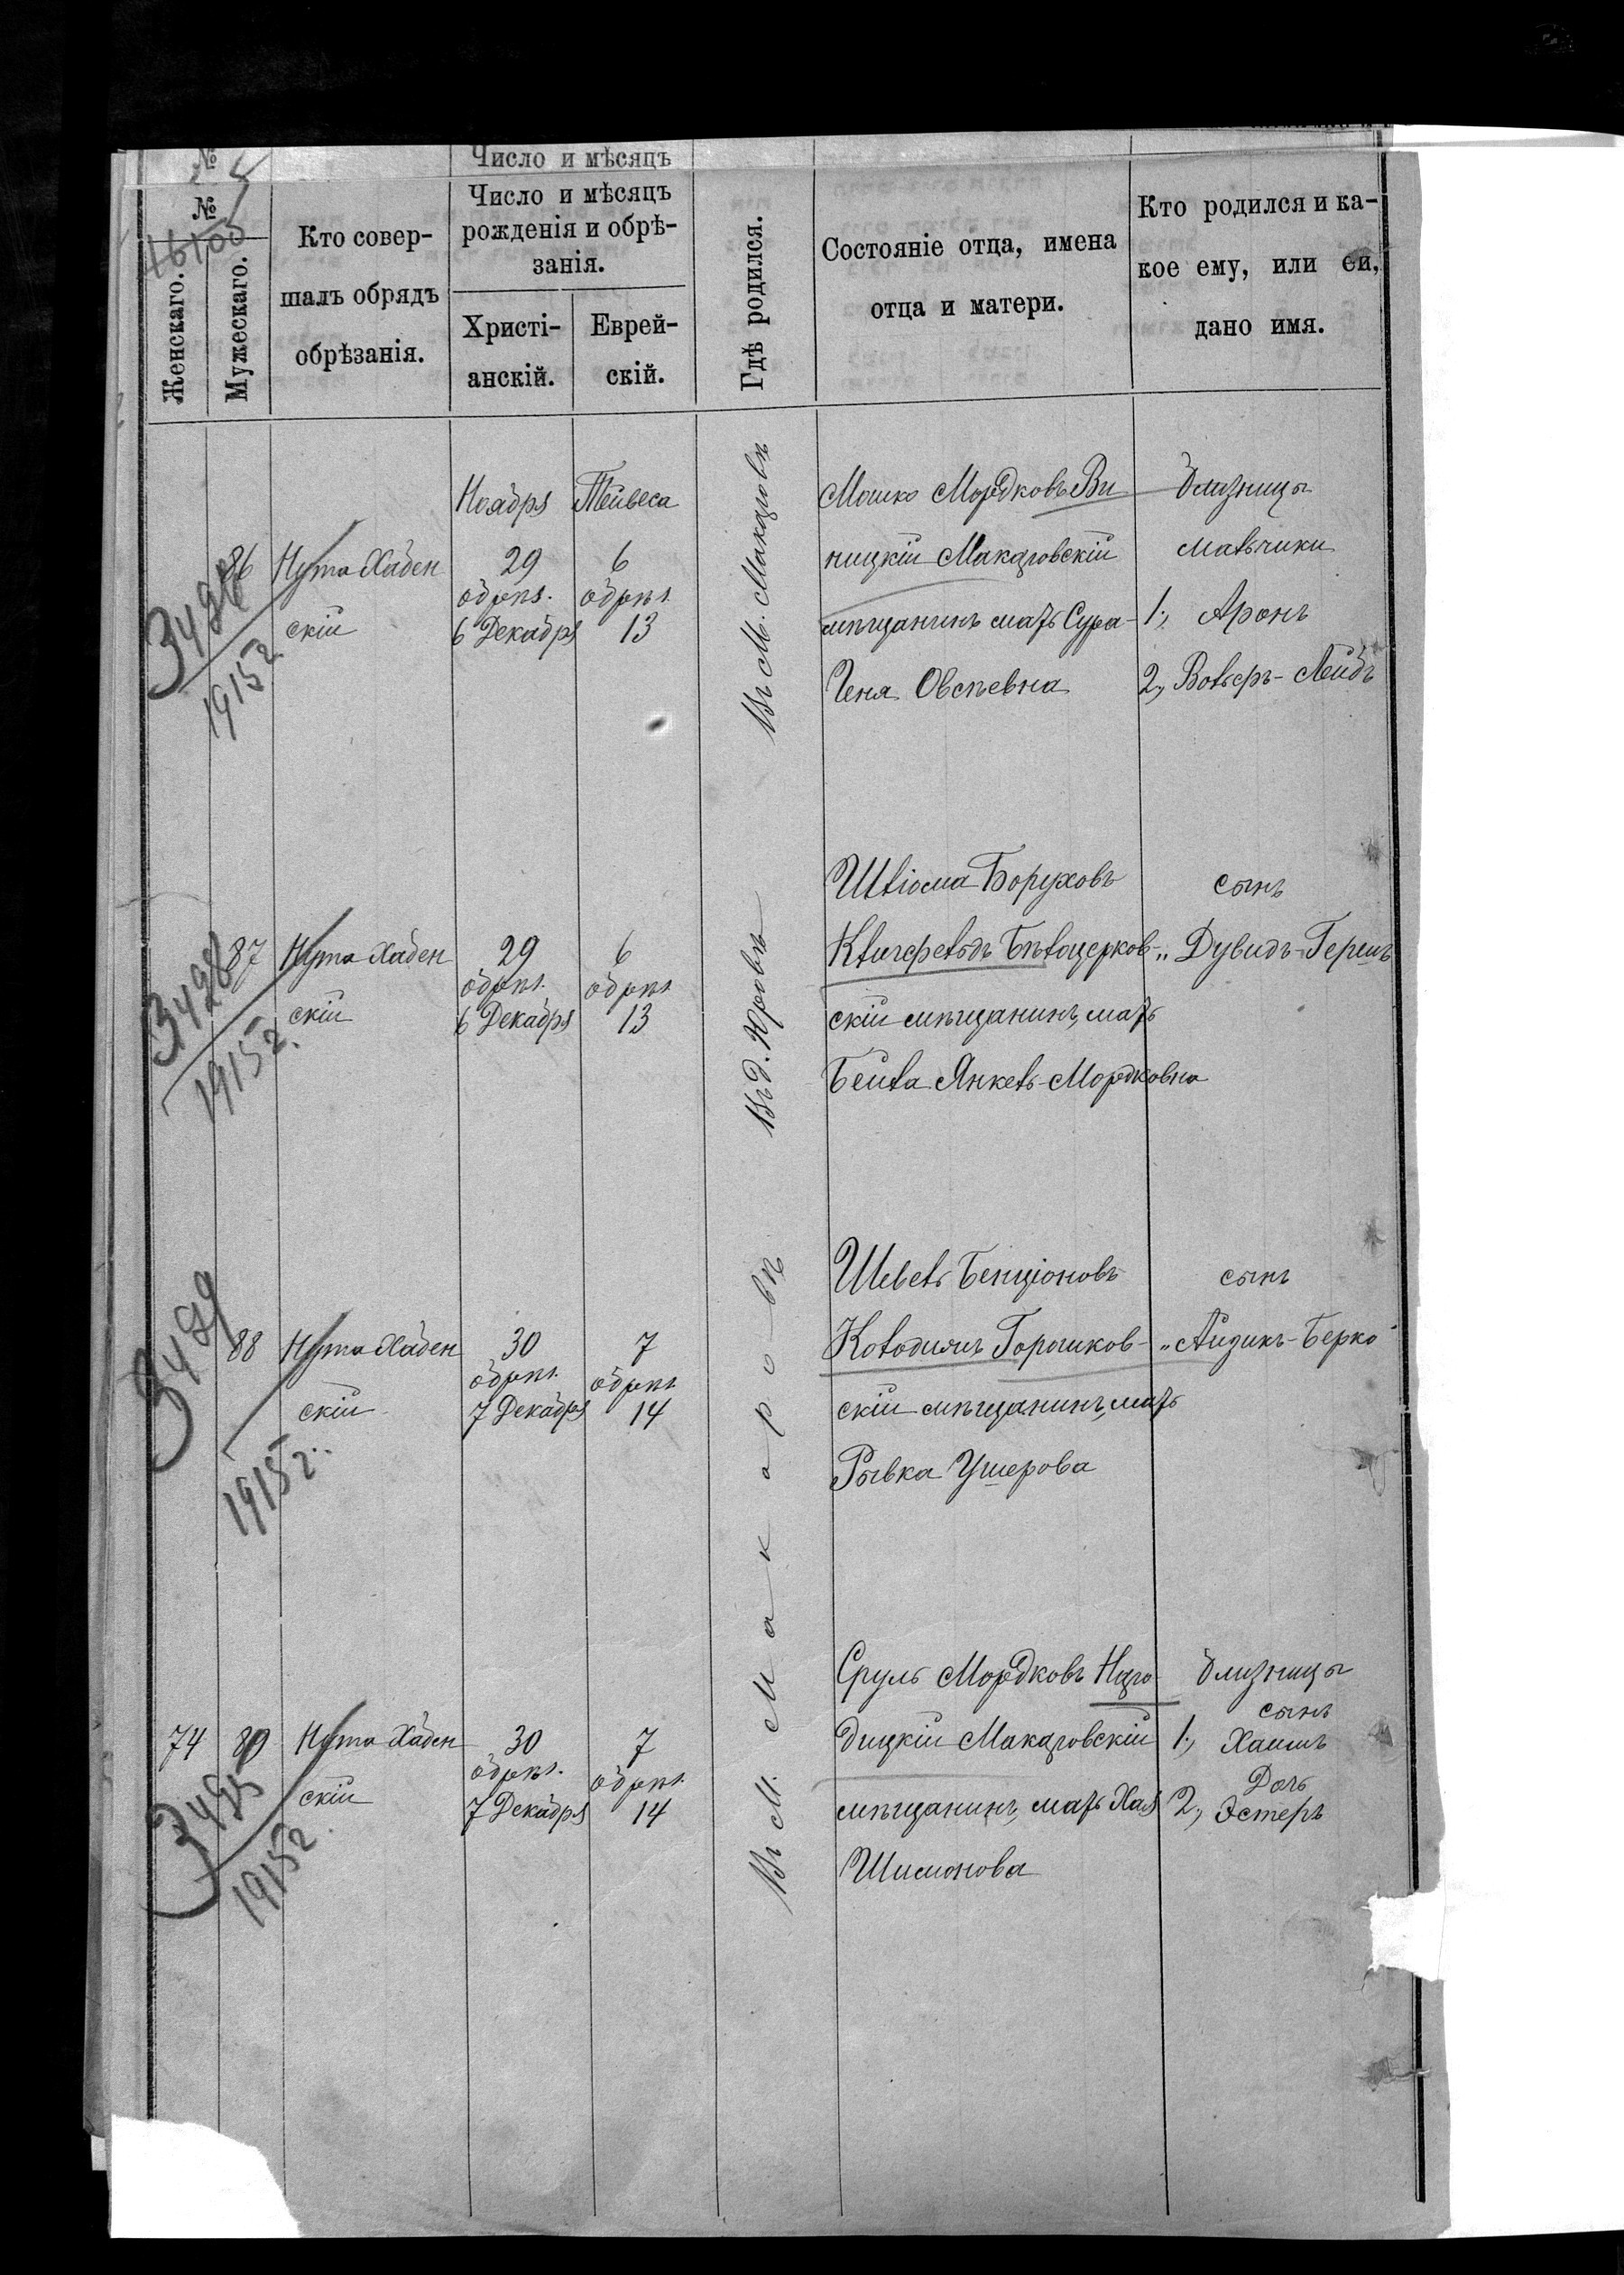 Число и мѣсяцъ
№
№
Женскаго.
Мужескаго.
Кто совер-
шалъ обрядъ
обрѣзанія.
Число и мѣсяцъ
рожденія и обрѣ-
занія.
Христі-
анскій.
Еврей-
скій.
Гдѣ родился.
Состояніе отца, имена
отца и матери.
Кто родился и ка-
кое ему, или ей,
дано имя.
86
3426
1915 г
Нута Хабен
скій
Ноября
29
обрѣз.
6 Декабря
Тейвеса
6
обрѣз.
13
Въ М. Макаровѣ
Мошко Мордковъ Ви
ницкій Макаровскій
мѣщанинъ мать Сура-
Геня Овсѣевна
близнецы
мальчики
1., Аронъ
2., Вольфъ-Лейбъ
87
3428
1915 г.
Нута Хабен
скій
29
обрѣз.
6 Декабря
6
обрѣз.
13
Въ д. Юровѣ
Шліома Боруховъ
Клигфельдъ Бѣлоцерков-
скій мѣщанинъ, мать
Бейла Янкель-Мордковна
сынъ
„Дувидъ-Гершъ
88
3429
1915 г.
Нута Хабен
скій
30
обрѣз.
7 Декабря
7
обрѣз.
14
Въ М. Макаровѣ
Шевель Бенціоновъ
Колодичъ Горошков-
скій мѣщанинъ, мать
Рывка Ушерова
сынъ
„Айзикъ-Берко
74
89
1915 г.
Нута Хабен
скій
30
обрѣз.
7 Декабря
7
обрѣз.
14
Сруль Мордковъ Наро-
дицкій Макаровскій
мѣщанинъ, мать Хая
Шимонова
близнецы
сынъ
1., Хаимъ
Дочь
2., Эстеръ